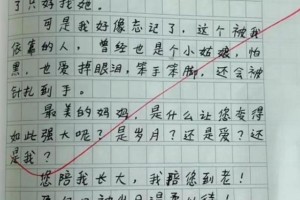 了只好找她。
可是我好像忘记了，这个被我
依靠的人，曾经也是个小姑娘，怕
黑，也爱掉眼泪，笨手笨脚，还会被
针扎到手。
最美的妈妈，是什么让您变得
如此强大呢？是岁月？还是爱？还
是我？
您陪我长大，我陪您到老！